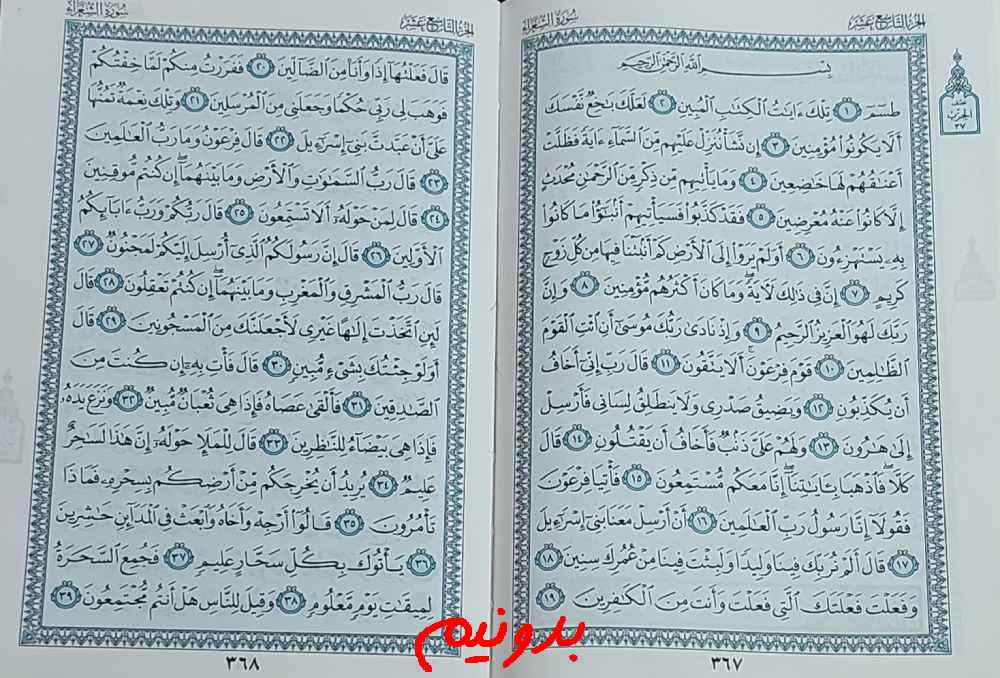 الجزء التاسع عشر
سورة الشعراء
بِسْمِ اللَّهِ الرَّحْمَٰنِ الرَّحِيمِ
طسٓمٓ ١ تِلْكَ ءَايَٰتُ الْكِتَٰبِ الْمُبِينِ ٢ لَعَلَّكَ بَٰخِعٌ نَّفْسَكَ
أَلَّا يَكُونُوا۟ مُؤْمِنِينَ ٣ إِن نَّشَأْ نُنَزِّلْ عَلَيْهِم مِّنَ السَّمَآءِ ءَايَةً فَظَلَّتْ
أَعْنَٰقُهُمْ لَهَا خَٰضِعِينَ ٤ وَمَا يَأْتِيهِم مِّن ذِكْرٍ مِّنَ الرَّحْمَٰنِ مُحْدَثٍ
إِلَّا كَانُوا۟ عَنْهُ مُعْرِضِينَ ٥ فَقَدْ كَذَّبُوا۟ فَسَيَأْتِيهِمْ أَنۢبَٰٓؤُا۟ مَا كَانُوا۟
بِهِۦ يَسْتَهْزِءُونَ ٦ أَوَلَمْ يَرَوْا۟ إِلَى الْأَرْضِ كَمْ أَنۢبَتْنَا فِيهَا مِن كُلِّ زَوْجٍ
كَرِيمٍ ٧ إِنَّ فِى ذَٰلِكَ لَءَايَةً وَمَا كَانَ أَكْثَرُهُم مُّؤْمِنِينَ ٨ وَإِنَّ
رَبَّكَ لَهُوَ الْعَزِيزُ الرَّحِيمُ ٩ وَإِذْ نَادَىٰ رَبُّكَ مُوسَىٰٓ أَنِ ائْتِ الْقَوْمَ
الظَّٰلِمِينَ ١٠ قَوْمَ فِرْعَوْنَ أَلَا يَتَّقُونَ ١١ قَالَ رَبِّ إِنِّىٓ أَخَافُ
أَن يُكَذِّبُونِ ١٢ وَيَضِيقُ صَدْرِى وَلَا يَنطَلِقُ لِسَانِى فَأَرْسِلْ
إِلَىٰ هَٰرُونَ ١٣ وَلَهُمْ عَلَىَّ ذَنۢبٌ فَأَخَافُ أَن يَقْتُلُونِ ١٤ قَالَ
كَلَّا فَاذْهَبَا بِـَٔايَٰتِنَآ إِنَّا مَعَكُم مُّسْتَمِعُونَ ١٥ فَأْتِيَا فِرْعَوْنَ
فَقُولَآ إِنَّا رَسُولُ رَبِّ الْعَٰلَمِينَ ١٦ أَنْ أَرْسِلْ مَعَنَا بَنِىٓ إِسْرَٰٓءِيلَ
١٧ قَالَ أَلَمْ نُرَبِّكَ فِينَا وَلِيدًا وَلَبِثْتَ فِينَا مِنْ عُمُرِكَ سِنِينَ ١٨
وَفَعَلْتَ فَعْلَتَكَ الَّتِى فَعَلْتَ وَأَنتَ مِنَ الْكَٰفِرِينَ ١٩
٣٦٧
الحزب
٣٧
الجزء التاسع عشر
سورة الشعراء
قَالَ فَعَلْتُهَآ إِذًا وَأَنَا۠ مِنَ الضَّآلِّينَ ٢٠ فَفَرَرْتُ مِنكُمْ لَمَّا خِفْتُكُمْ
فَوَهَبَ لِى رَبِّى حُكْمًا وَجَعَلَنِى مِنَ الْمُرْسَلِينَ ٢١ وَتِلْكَ نِعْمَةٌ تَمُنُّهَا
عَلَىَّ أَنْ عَبَّدتَّ بَنِىٓ إِسْرَٰٓءِيلَ ٢٢ قَالَ فِرْعَوْنُ وَمَا رَبُّ الْعَٰلَمِينَ
٢٣ قَالَ رَبُّ السَّمَٰوَٰتِ وَالْأَرْضِ وَمَا بَيْنَهُمَآ إِن كُنتُم مُّوقِنِينَ
٢٤ قَالَ لِمَنْ حَوْلَهُۥٓ أَلَا تَسْتَمِعُونَ ٢٥ قَالَ رَبُّكُمْ وَرَبُّ ءَابَآئِكُمُ
الْأَوَّلِينَ ٢٦ قَالَ إِنَّ رَسُولَكُمُ الَّذِىٓ أُرْسِلَ إِلَيْكُمْ لَمَجْنُونٌ ٢٧
قَالَ رَبُّ الْمَشْرِقِ وَالْمَغْرِبِ وَمَا بَيْنَهُمَآ إِن كُنتُمْ تَعْقِلُونَ ٢٨ قَالَ
لَئِنِ اتَّخَذْتَ إِلَٰهًا غَيْرِى لَأَجْعَلَنَّكَ مِنَ الْمَسْجُونِينَ ٢٩ قَالَ
أَوَلَوْ جِئْتُكَ بِشَىْءٍ مُّبِينٍ ٣٠ قَالَ فَأْتِ بِهِۦٓ إِن كُنتَ مِنَ
الصَّٰدِقِينَ ٣١ فَأَلْقَىٰ عَصَاهُ فَإِذَا هِىَ ثُعْبَانٌ مُّبِينٌ ٣٢ وَنَزَعَ يَدَهُۥ
فَإِذَا هِىَ بَيْضَآءُ لِلنَّٰظِرِينَ ٣٣ قَالَ لِلْمَلَإِ حَوْلَهُۥٓ إِنَّ هَٰذَا لَسَٰحِرٌ
عَلِيمٌ ٣٤ يُرِيدُ أَن يُخْرِجَكُم مِّنْ أَرْضِكُم بِسِحْرِهِۦ فَمَاذَا
تَأْمُرُونَ ٣٥ قَالُوٓا۟ أَرْجِهْ وَأَخَاهُ وَابْعَثْ فِى الْمَدَآئِنِ حَٰشِرِينَ
٣٦ يَأْتُوكَ بِكُلِّ سَحَّارٍ عَلِيمٍ ٣٧ فَجُمِعَ السَّحَرَةُ
لِمِيقَٰتِ يَوْمٍ مَّعْلُومٍ ٣٨ وَقِيلَ لِلنَّاسِ هَلْ أَنتُم مُّجْتَمِعُونَ ٣٩
٣٦٨
بدونیم